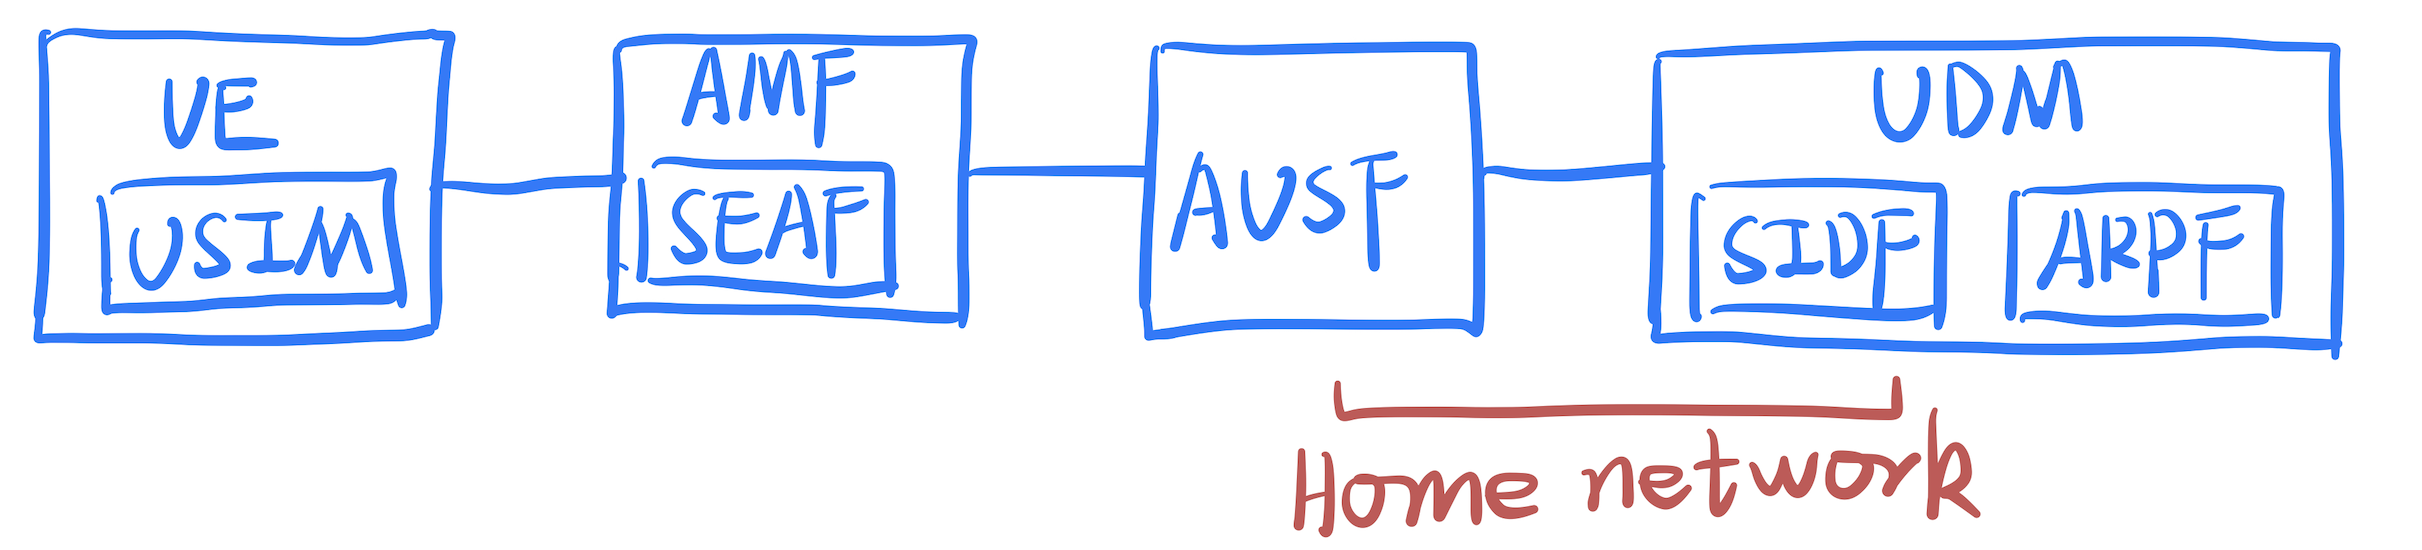 UE
USIM
AMF
SEAF
AUSF
UDM
SIDF
ARPF
Home network